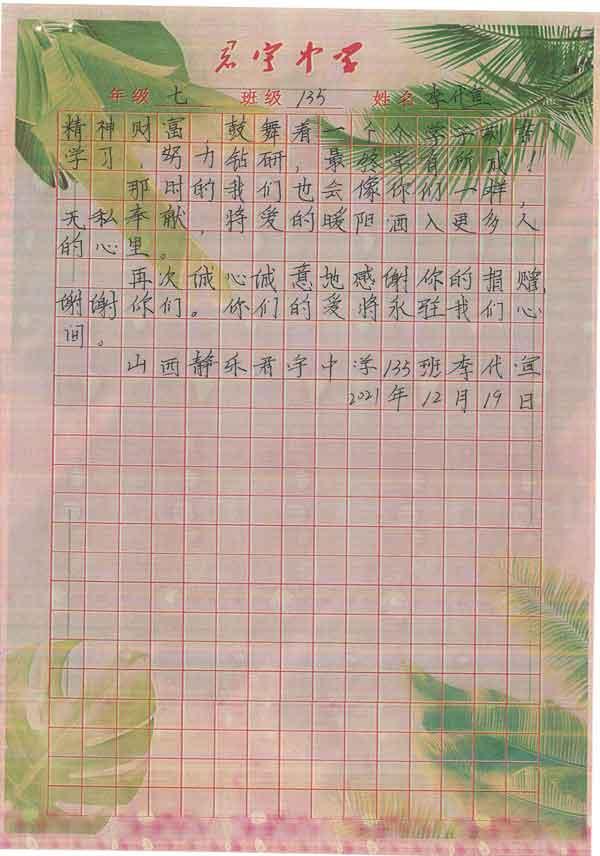 君宇中学
年级 七 班级 135 姓名 李代宣
精神财富,鼓舞着一个个莘莘学子刻苦
学习,努力钻研,最终学有所成!
那时的我们也会像你们一样,
无私奉献,将爱的暖阳洒入更多人
的心里。
再次诚心诚意地感谢你的捐赠,
谢谢你们。你们的爱将永驻我们心
间。
山西静乐君宇中学135班李代宣
2021年12月19日